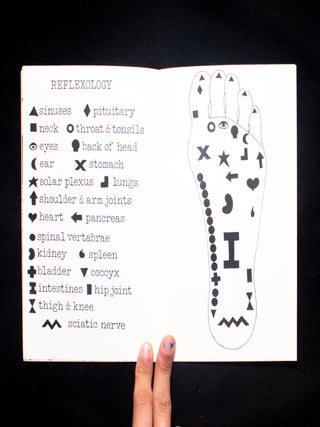 REFLEXOLOGY
sinuses pituitary
neck throat & tonsils
eyes back of head
ear stomach
solar plexus lungs
shoulder & arm joints
heart pancreas
spinal vertabrae
kidney spleen
bladder coccyx
intestines hip joint
thigh & knee
sciatic nerve